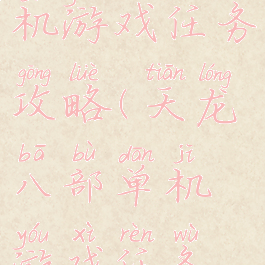 机游戏任务
gōng lüè tiān lóng
攻略(天龙
bā bù dān jī
八部单机
yóu xì rèn wù
游戏任务